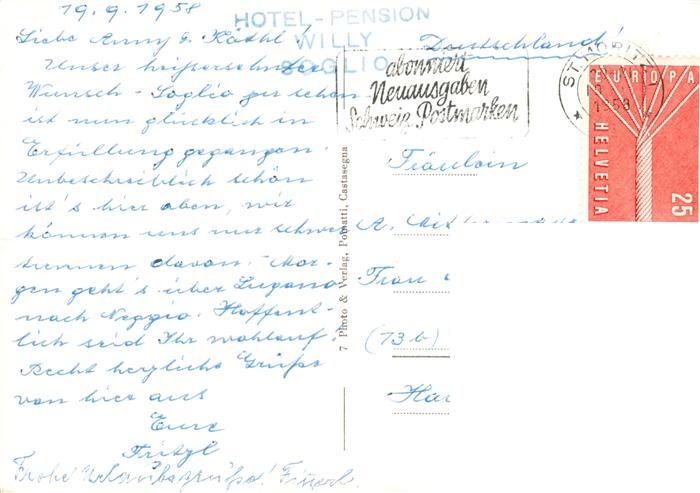 19.9.1958
HOTEL-PENSION
WILLY
SOGLIO
Liebe Anny u. Käthl!
Unser heißersehnter
Wunsch - Soglio zu sehen
ist nun glücklich in
Erfüllung gegangen.
Unbeschreiblich schön
ist's hier oben, wir
können uns nur schwer
trennen davon. Mor-
gen geht's über Lugano
nach Neggio. Hoffent-
lich seid Ihr wohlauf.
Recht herzliche Grüße
von hier aus
Eure
Fritzl
Frohe Urlaubsgrüße!
7 Photo & Verlag, Pomatti, Castasegna
Deutschland!
abonniert
Neuausgaben
Schweiz. Postmarken
ST. MORITZ
1958
EUROPA
HELVETIA
25
Fräulein
A.
Frau
(13b)